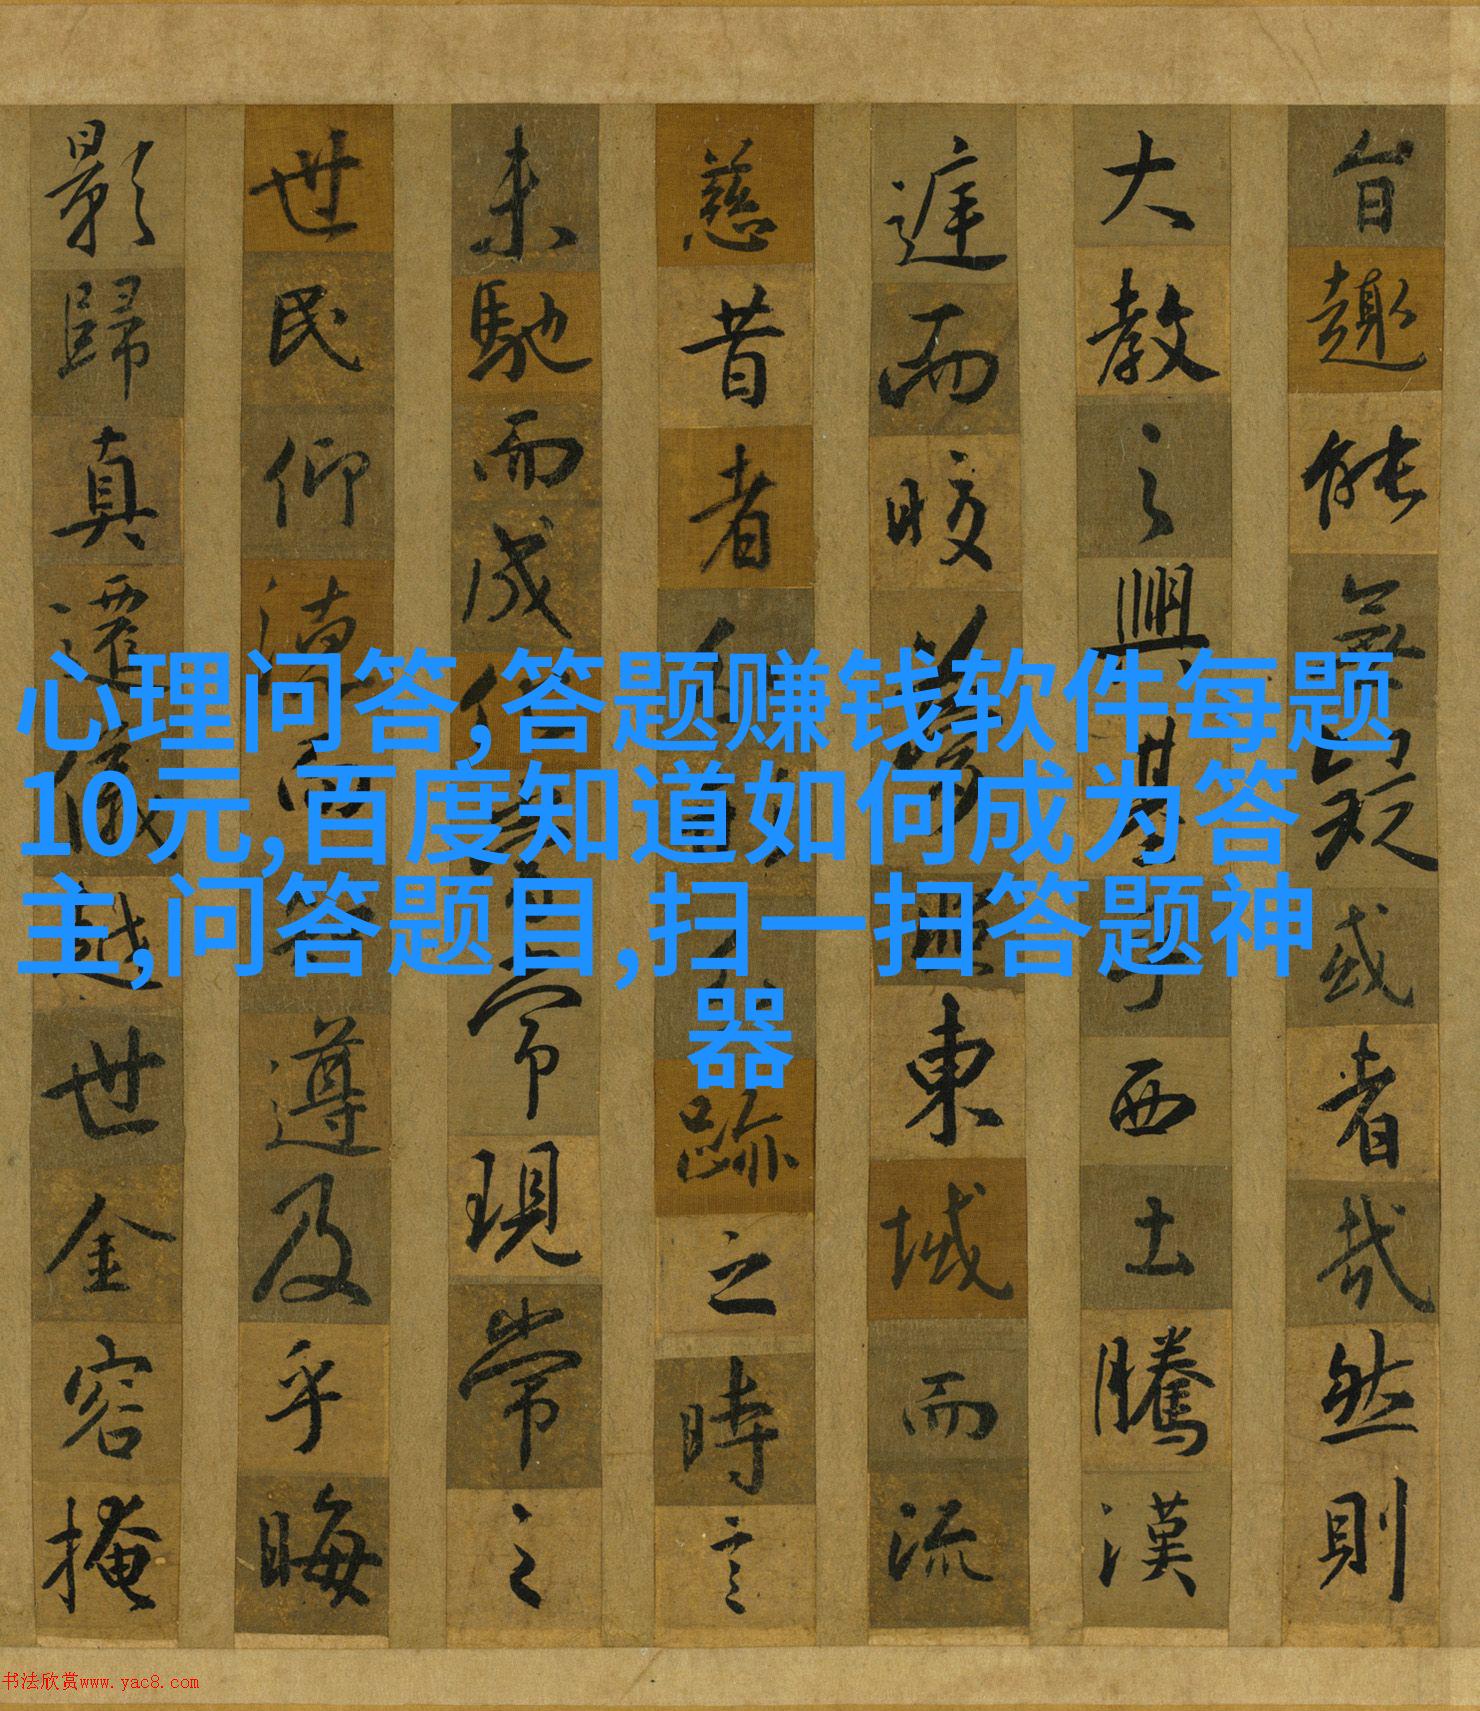 旨趣能無疑惑者哉然則
大教之興基乎西土騰漢
庭而皎夢照東域而流
慈昔者分形分跡之時言
未馳而成化當常現常之
世民仰德而知遵及乎晦
影歸真遷儀越世金容掩
心理问答,答题赚钱软件每题
10元,百度知道如何成为答
主,问答题目,扫一扫答题神
器
书法欣赏www.yac8.com